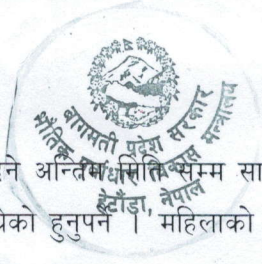 बागमती प्रदेश सरकार
भौतिक पूर्वाधार विकास मन्त्रालय
हेटौंडा, नेपाल
अन्तिम मिति सम्म सा
हुनुपर्ने । महिलाको